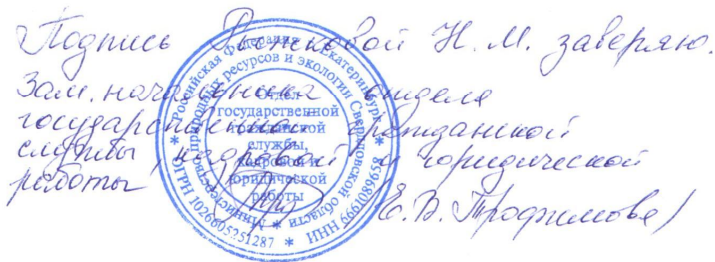 Подпись Рыжковой Н. М. заверяю.
Зам. начальника отдела
государственной гражданской
службы, кадровой и юридической
работы
/Е.В. Трофимова/
* Российская Федерация * г. Екатеринбург *
Министерство природных ресурсов и экологии Свердловской области *
ИНН 6661089658 *
Отдел
государственной
гражданской
службы,
кадровой и
юридической
работы